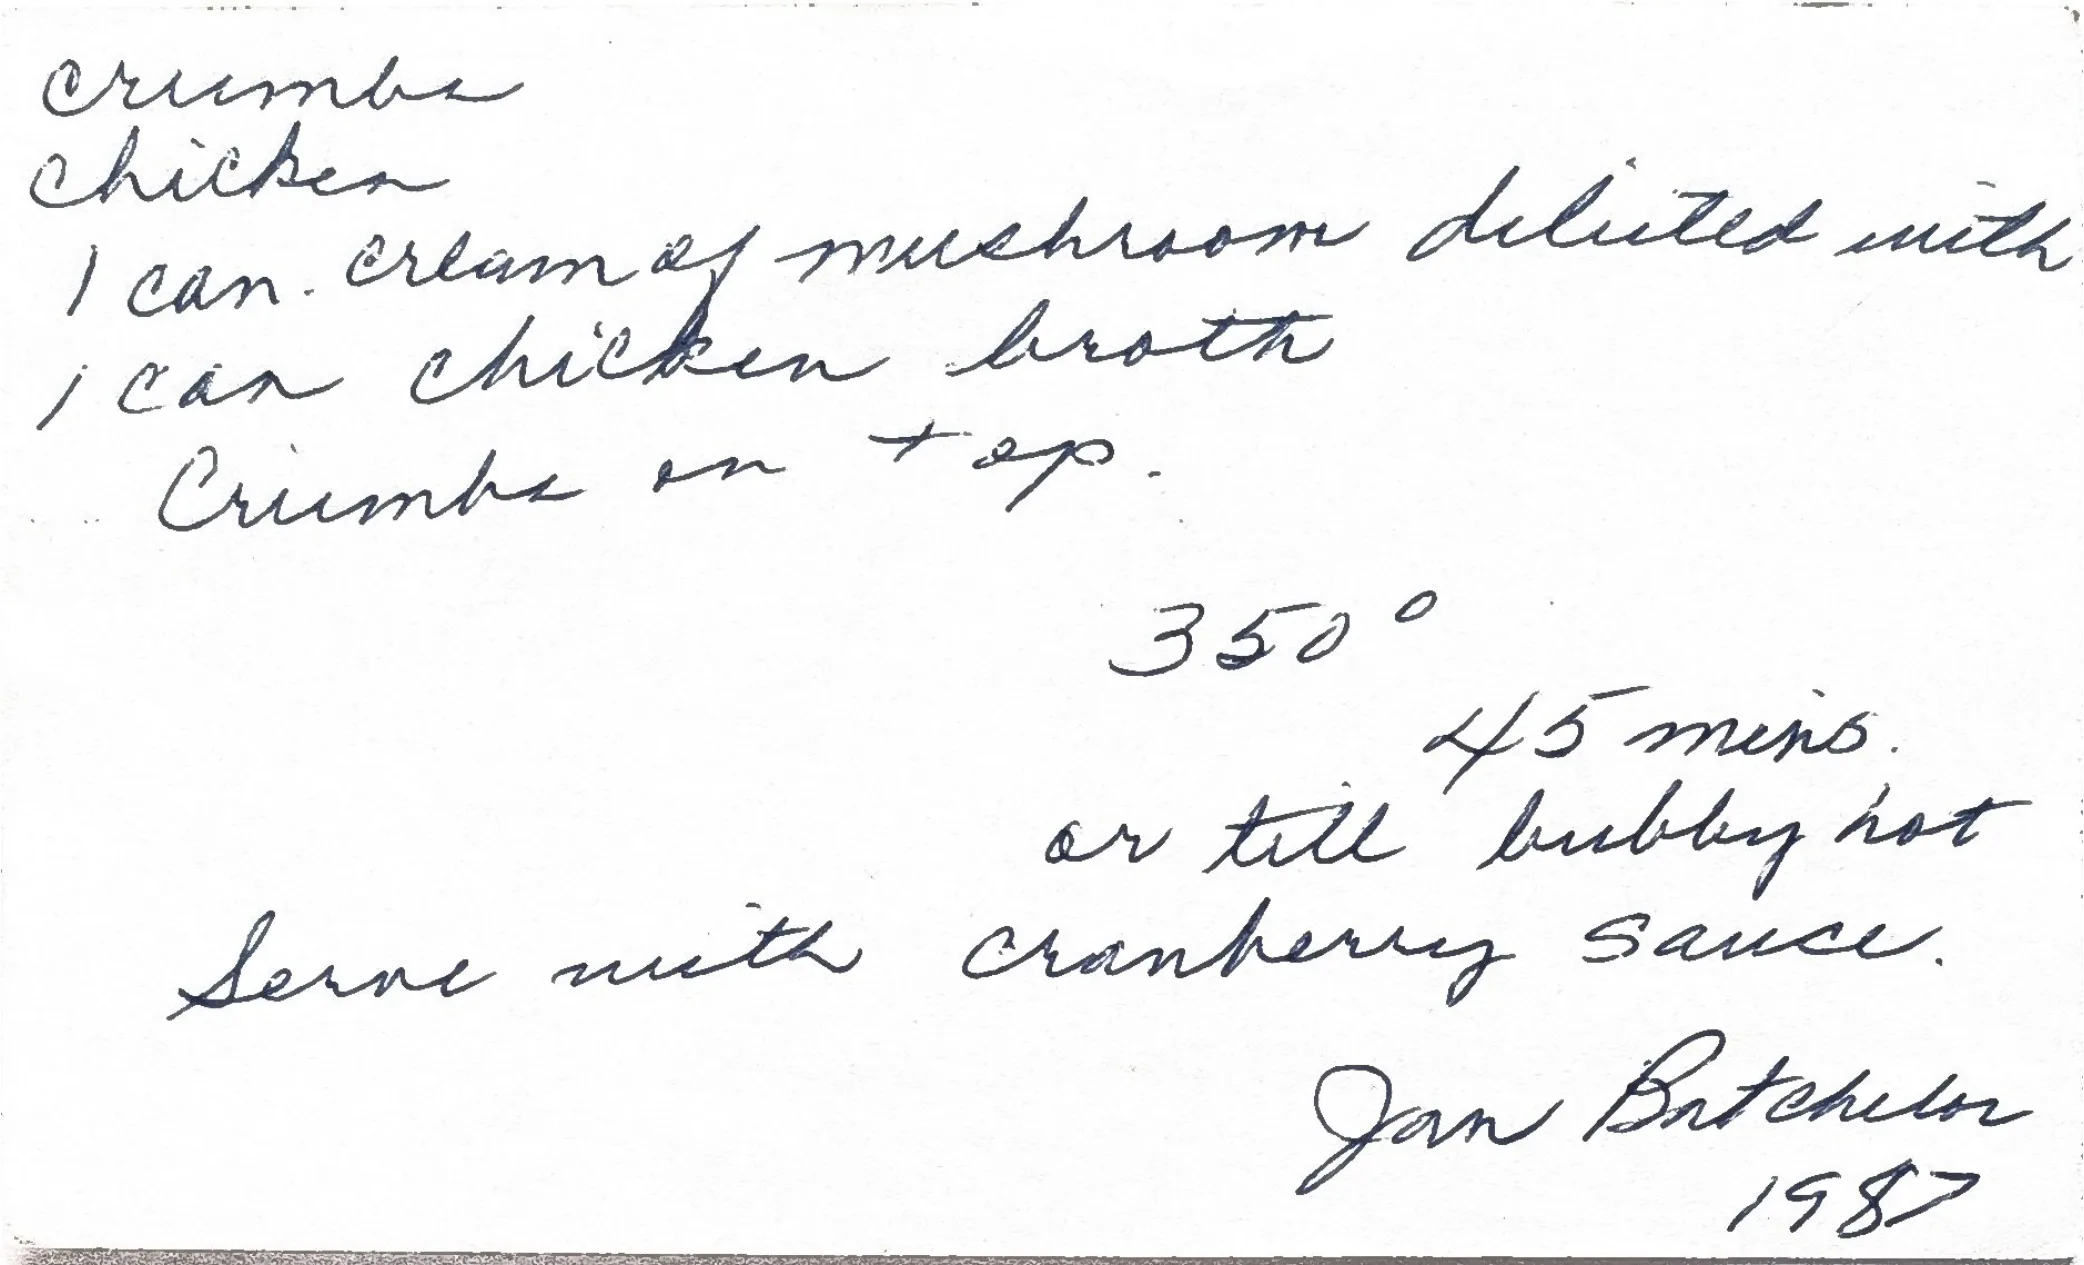 crumbs
chicken
1 can. cream of mushroom diluted with
1 can chicken broth
Crumbs on top.
350°
45 mins.
or till bubby hot
Serve with cranberry sauce.
Jan Batchelor
1987